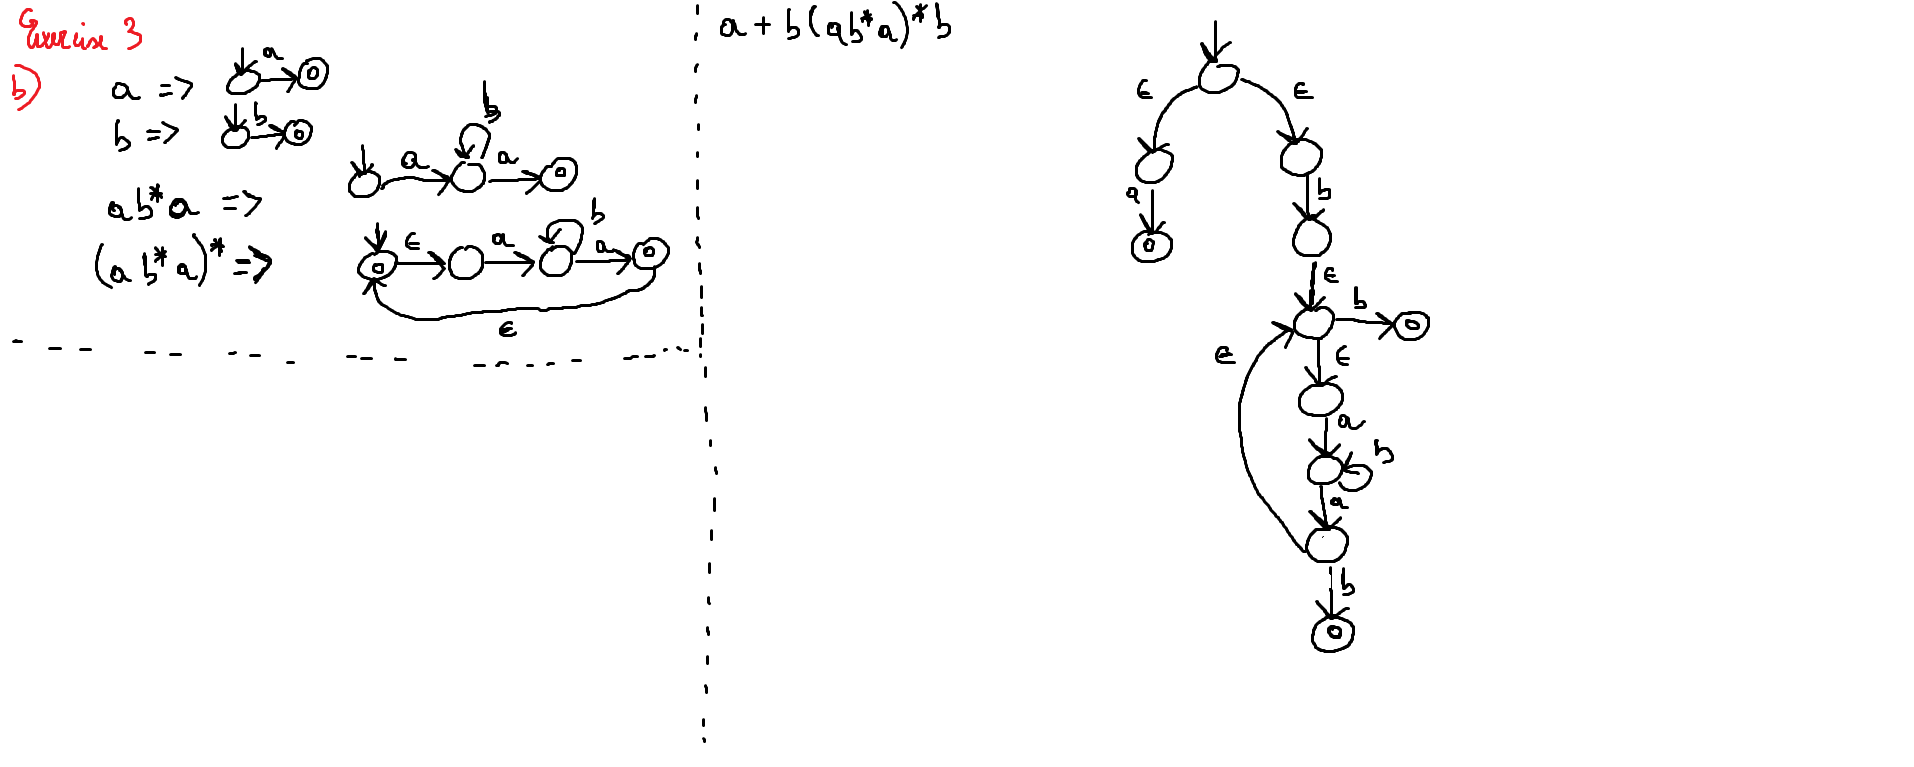 Exercise 3
b)
a => a
b => b
ab*a => a b a
(ab*a)* => ϵ a b a ϵ
a + b(ab*a)*b
ϵ ϵ
a b
ϵ
b
ϵ ϵ
a
b
a
b